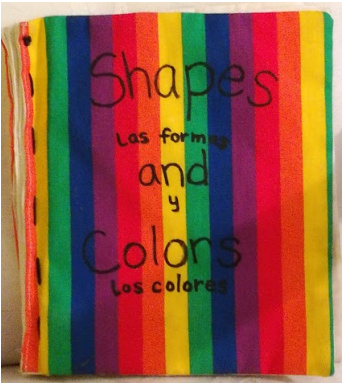 Shapes
Las formas
and
y
Colors
Los colores